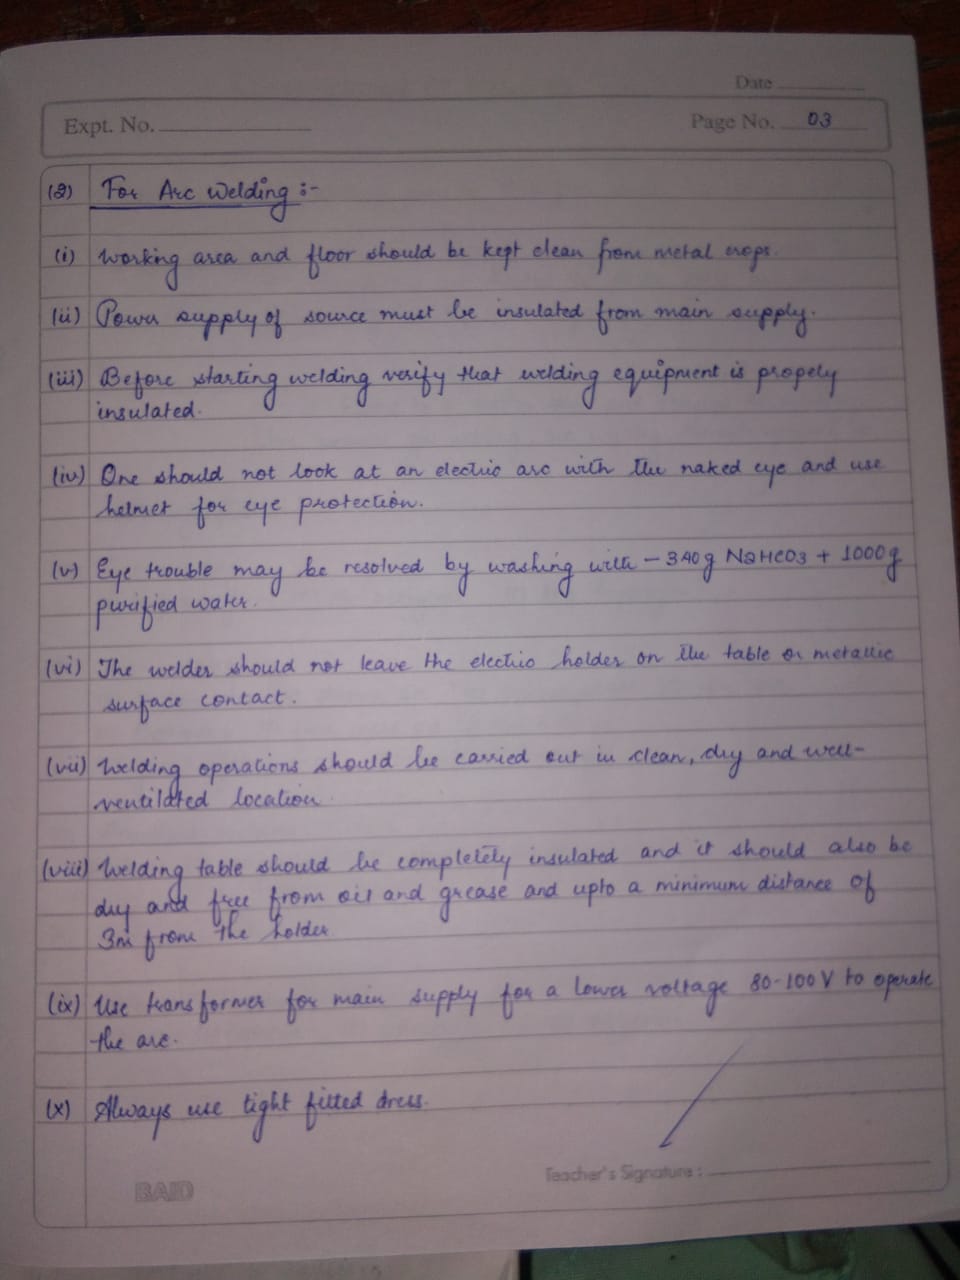 Date
Expt. No.
Page No. 03
(2) For Arc Welding :-
(i) Working area and floor should be kept clean from metal crops.
(ii) Power supply of source must be insulated from main supply.
(iii) Before starting welding verify that welding equipment is propely
insulated.
(iv) One should not look at an electric arc with the naked eye and use
helmet for eye protection.
(v) Eye trouble may be resolved by washing with - 340g NaHCO3 + 1000g
purified water.
(vi) The welder should not leave the electric holder on the table or metallic
surface contact.
(vii) Welding operations should be carried out in clean, dry and well-
ventilated location.
(viii) Welding table should be completely insulated and it should also be
dry and free from oil and grease and upto a minimum distance of
3m from the holder
(ix) Use transformer for main supply for a lower voltage 80-100V to operate
the arc.
(x) Always use tight fitted dress.
Teacher's Signature :
BAID